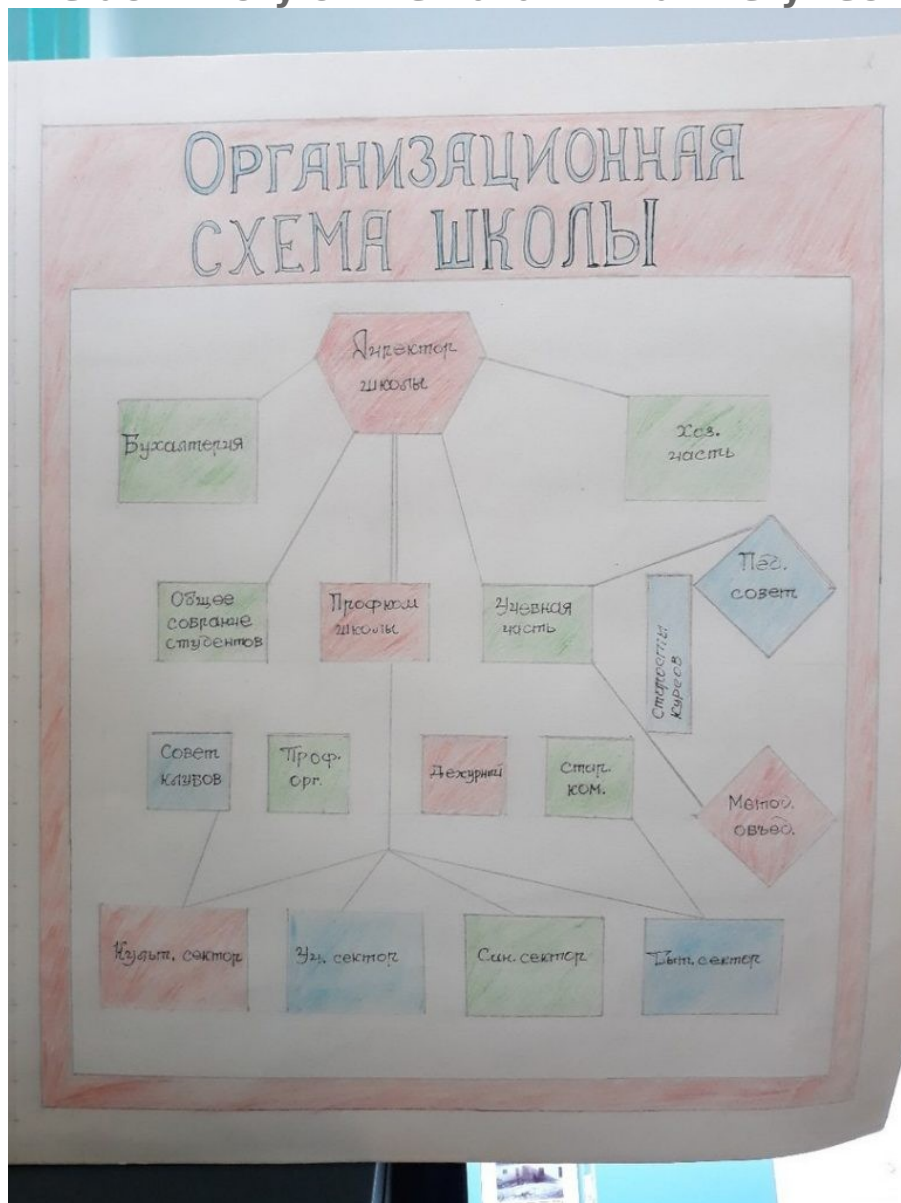 ОРГАНИЗАЦИОННАЯ
СХЕМА ШКОЛЫ
Директор
школы
Бухалтерия
Хоз.
часть
Общее
собрание
студентов
Профком
школы
Учебная
часть
Старосты
курсов
Пед.
совет
Совет
клубов
Проф.
орг.
Дежурный
Стар.
ком.
Метод.
объед.
Культ. сектор
Уч. сектор
Сан. сектор
Быт. сектор